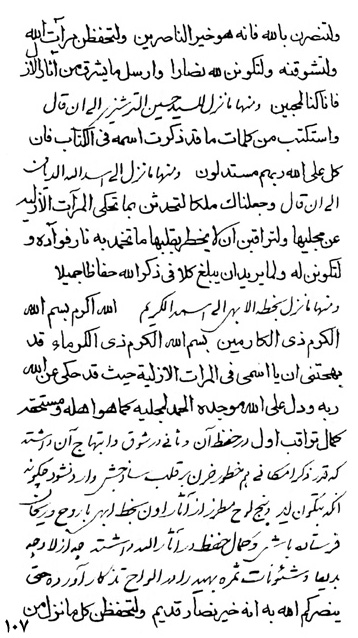 ولتنصرن بالله فانه هو خير الناصرين ولتحفظن مرآت الله
ولتشوقنه ولتكونن لله نصارا وارسل ما يشرق من آثار الاز
فانا كنا لمحبين ومنها ما نزل للسيد حسين الترشيزى الى ان قال
واستكتب من كلمات ما قد ذكرت اسمه فى الكتاب فان
كل على الله ربهم مستدلون ومنها ما نزل الى اسد الله الديان
الى ان قال وجعلناك ملكا لتحدثن بما تحكى المرآت الازلية
عن مجليها ولتراقبن ان لا يخطر بقلبها ما تخمد به نار فواده و
لتكونن له ولما يريد ان يبلغ كلا فى ذكر الله حفاظا جميلا
ومنها ما نزل بخطه الابهى الى اسمه الكريم الله اكرم بسم الله
الكرم ذى الكارمين بسم الله الكرم ذى الكرماء قد
بهجتنى ان يا اسمى فى المرآت الازلية حيث قد حكى عن الله
ربه ودل على الله موجده الحمد لمجليه كما هو اهله و مستحقه
كمال تراقب اول در حفظ آن و ثانى در شوق و ابتهاج آن داشته
كه قدر ذكر امكانى هم خطور حزن بر قلب ساذجش وارد نشود چگونه
آنكه تكون لديه و پنج لوح مطرز از آثار اون بخط ابهى با روح و ريحان
فرستاده باشى و كمال حفظ در آثار الله داشته چه از لا وچه
بدعا و شئونات ثمره بهيه را در الواح تذكار آورده حق
ينصركم الله به انه خير نصار قديم ولتحفظن كل ما نزل من
١٠٧